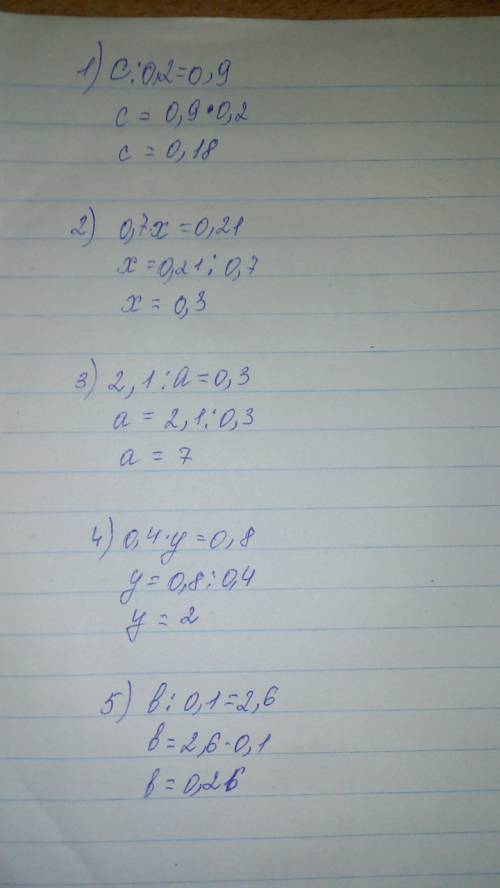 1) C:0,2=0,9
c = 0,9·0,2
c = 0,18
2) 0,7·x=0,21
x=0,21:0,7
x = 0,3
3) 2,1:a=0,3
a = 2,1:0,3
a = 7
4) 0,4·y=0,8
y=0,8:0,4
y = 2
5) в:0,1=2,6
в=2,6·0,1
в=0,26